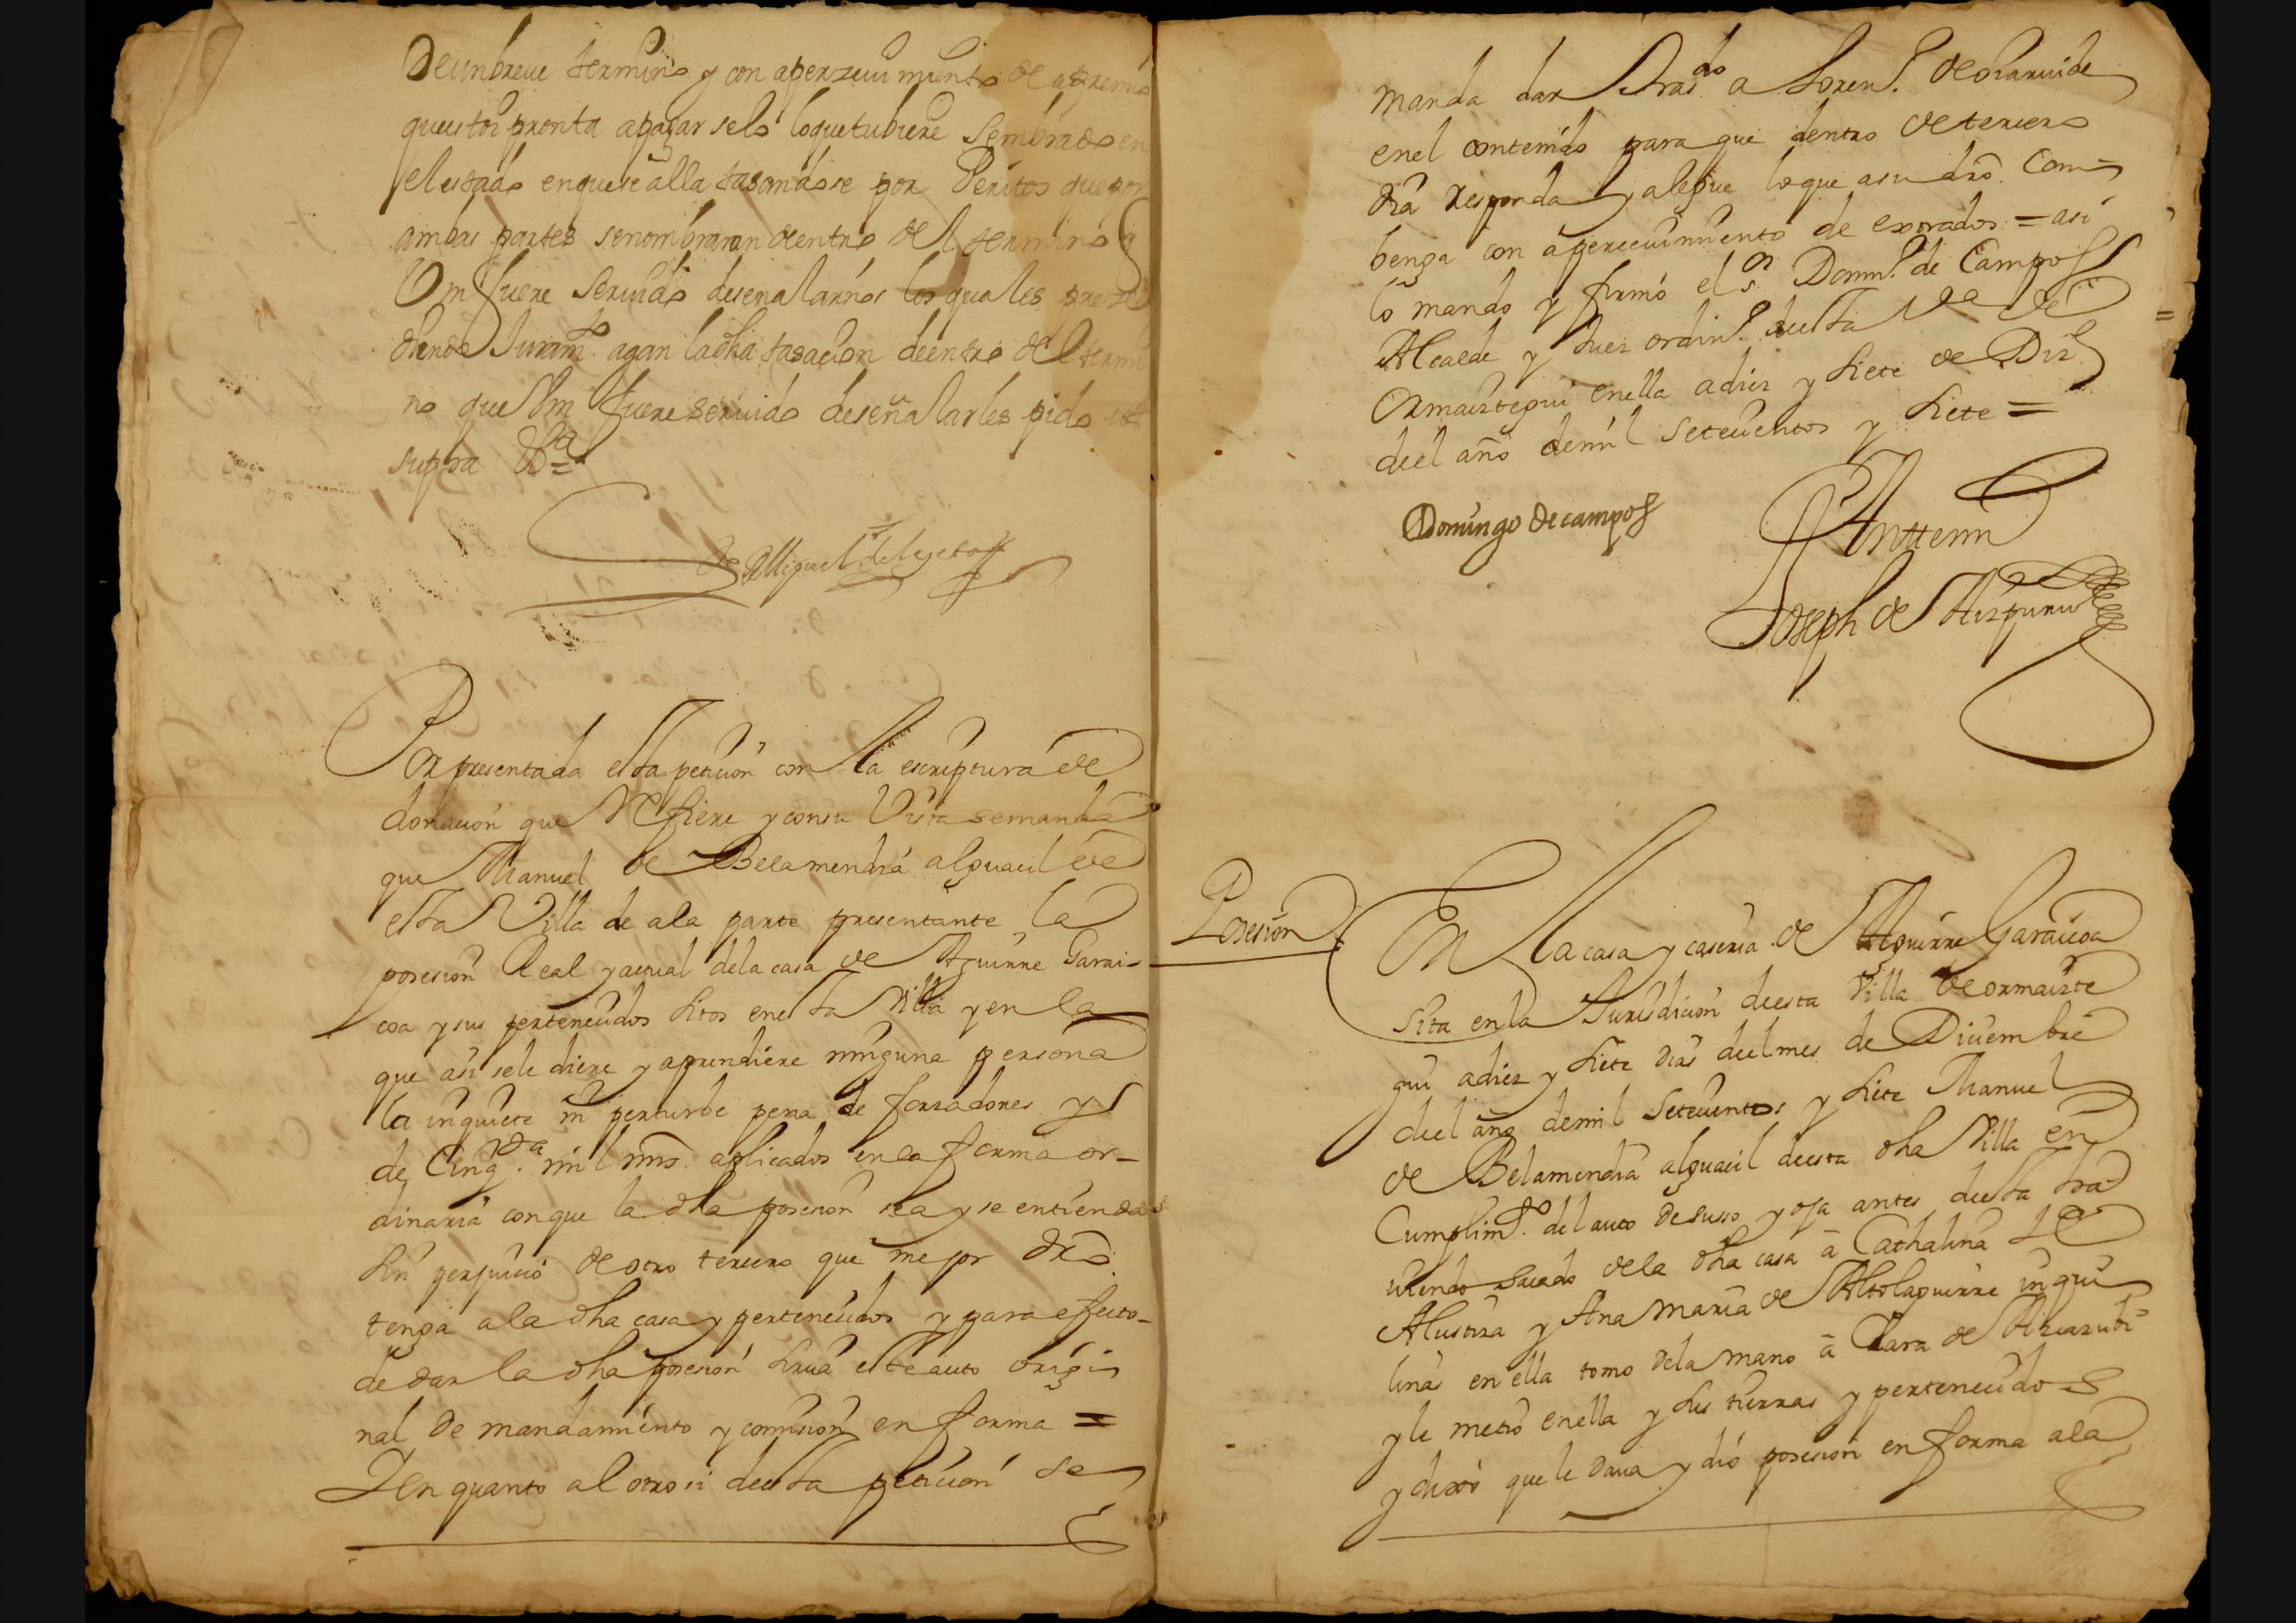 de un breue termino y con aperzeuimiento de apremio
que estoi pronta a pagarselo lo que tubiere sembrado en
el estado en que se alla tasandose por Peritos que por
ambas partes se nombraran dentro del termino q
Vm fuere seruido de señalarnos los quales prece
diendo Juramto. agan la dha tasacion deentro del termi
no que Vm fuere seruido de señalarles pido ut
supra Va=
Miguel de
Por presentada esta peticion con la escriptura de
donacion que Refiere y con su Vista se manda
que Manuel de Belamendia alguacil de
esta Villa de a la parte presentante la
posesion Real y actual de la casa de Aguirre Garai-
coa y sus pertenecidos sitos en esta Villa y en la
que asi se le diere y aprendiere ninguna persona
la inquiete ni perturbe pena de forzadores y
de Cinqta. mil mrs. aplicados en la forma or-
dinaria con que la dha posesion sea y se entienda
sin perjuicio de otro tercero que mejor dro.
tenga a la dha casa y pertenecidos y para efecto-
de dar la dha posesion sirua este auto origi
nal de mandamiento y comision en forma =
Y en quanto al otro si de esta peticion se
manda dar trasdo a Loren.º de
en el contenido para que dentro de tercero
dia responda y alegue lo que a su dro. com-
benga con aperceuimiento de = asi
lo mando y firmó el sor. Domin.º de Campos
Alcalde y Juez ordin.º de esta Va de
Ormaiztegui en ella a diez y siete de Dize
de el año de mil setecientos y siete =
Domingo de campos
Antte mi
Joseph de Aizpuru
Posesion
En la casa y caseria de Aguirre Garaicoa
sita en la Jurisdicion de esta Villa de ormaizte
gui a diez y siete dias de el mes de Diciembre
de el año de mil setecientos y siete Manuel
de Belamendia alguacil de esta dha Villa en
Cumplimto. del auto de susso y oja antes de esta ha
uiendo sacado de la dha casa á Cathalina de
Alustiza y Ana maria de Altolaguirre inqui
linas en ella tomo de la mano á Clara de
y le metió en ella y sus tierras y pertenecidos
y dixo que le daua y dió posesion en forma a la